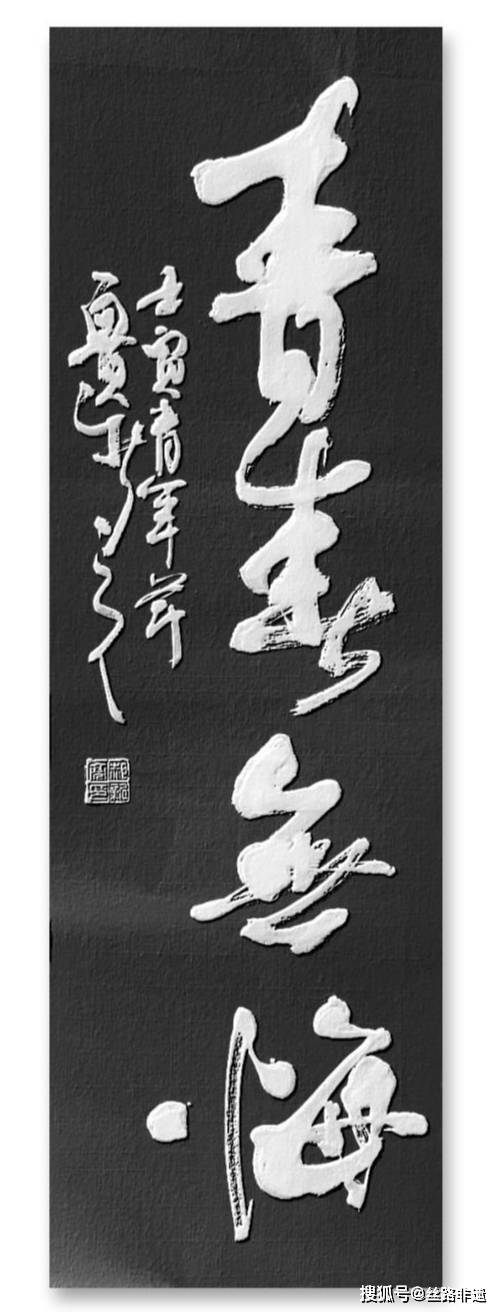 青春無悔
壬寅青年节
搜狐号@丝路非遗